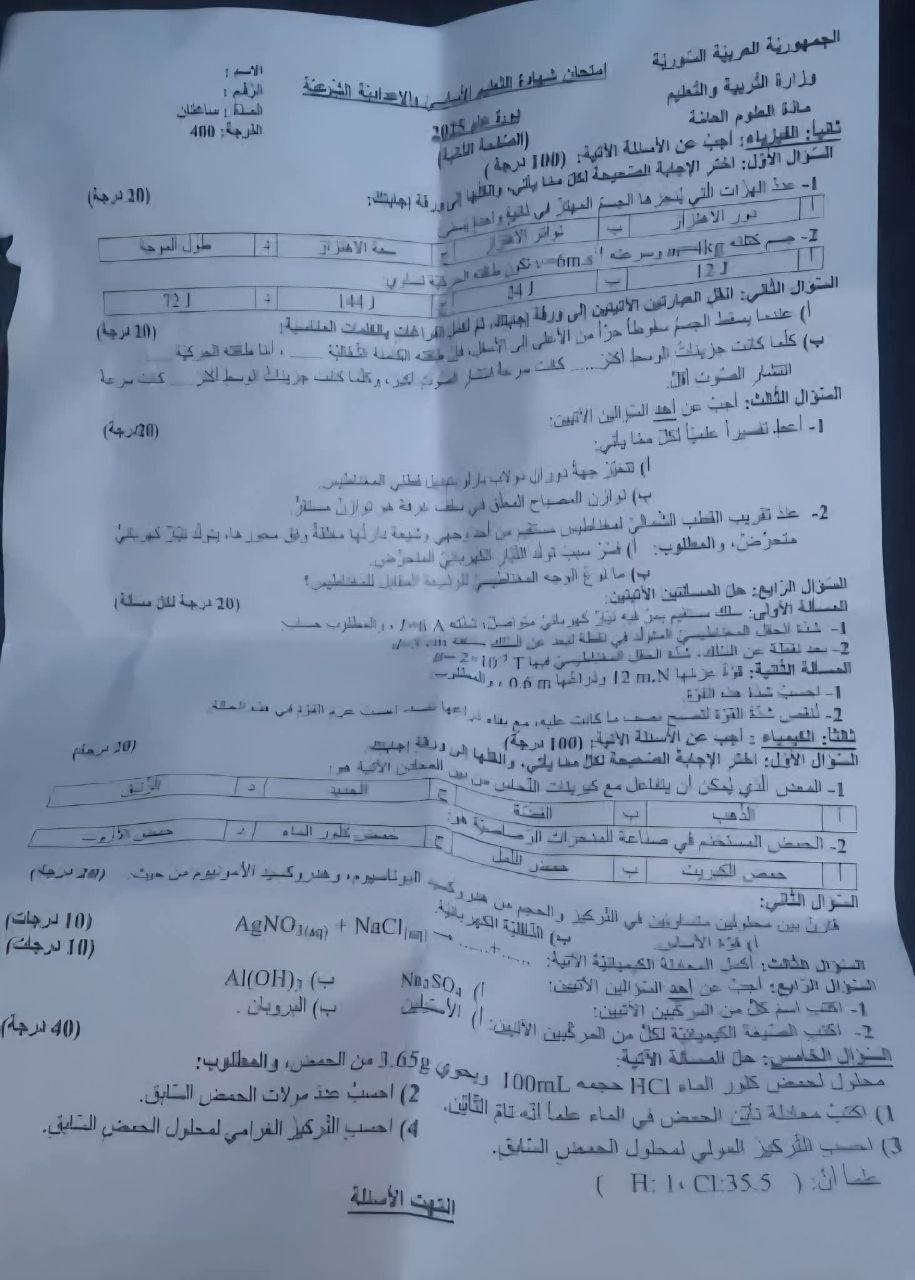 الجمهورية العربية السورية
وزارة التربية والتعليم
مادة العلوم العامة
امتحان شهادة التعليم الأساسي والإعدادية الشرعية
دورة عام 2025
(الصفحة الثانية)
الاسم :
الرقم :
المدة : ساعتان
الدرجة: 400
ثانياً: الفيزياء: أجب عن الأسئلة الآتية: (100 درجة)
السؤال الأول: اختر الإجابة الصحيحة لكل مما يأتي، وانقلها إلى ورقة إجابتك: (20 درجة)
1- عدد الهزات التي ينجزها الجسم المهتز في ثانية واحدة يسمى
أ دور الاهتزاز ب تواتر الاهتزاز ج سعة الاهتزاز د طول الموجة
2- جسم كتلته m=4kg وسرعته v=6m.s⁻¹ تكون طاقته الحركية تساوي:
أ 12 J ب 24 J ج 144 J د 72 J
السؤال الثاني: انقل العبارتين الآتيتين إلى ورقة إجابتك، ثم املأ الفراغات بالكلمات المناسبة: (20 درجة)
أ) عندما يسقط الجسم سقوطاً حراً من الأعلى إلى الأسفل، فإن طاقته الكامنة الثقالية ..... ، أما طاقته الحركية .....
ب) كلما كانت جزيئات الوسط أكثر ..... كانت سرعة انتشار الصوت أكبر، وكلما كانت جزيئات الوسط أكثر ..... كانت سرعة
انتشار الصوت أقل.
السؤال الثالث: أجب عن أحد السؤالين الآتيين: (20 درجة)
1- أعط تفسيراً علمياً لكل مما يأتي:
أ) تتغير جهة دوران دولاب بارلو بتبديل قطبي المغناطيس.
ب) توازن المصباح المعلق في سقف غرفة هو توازن مستقر.
2- عند تقريب القطب الشمالي لمغناطيس مستقيم من أحد وجهي وشيعة دارتها مغلقة وفق محورها، يتولد تيار كهربائي
متحرض، والمطلوب: أ) فسر سبب تولد التيار الكهربائي المتحرض.
ب) ما نوع الوجه المغناطيسي للوشيعة المقابل للمغناطيس؟
السؤال الرابع: حل المسألتين الآتيتين: (20 درجة لكل مسألة)
المسألة الأولى: سلك مستقيم يمر فيه تيار كهربائي متواصل، شدته I=6 A ، والمطلوب حساب:
1- شدة الحقل المغناطيسي المتولد في نقطة تبعد عن السلك مسافة
2- بعد نقطة عن السلك، شدة الحقل المغناطيسي فيها
المسألة الثانية: قوة عزمها 12 m.N وذراعها 0.6 m ، والمطلوب:
1- احسب شدة هذه القوة.
2- أنقص شدة القوة لتصبح نصف ما كانت عليه، مع بقاء ذراعها نفسه، احسب عزم القوة في هذه الحالة.
ثالثاً: الكيمياء : أجب عن الأسئلة الآتية: (100 درجة)
السؤال الأول: اختر الإجابة الصحيحة لكل مما يأتي، وانقلها إلى ورقة إجابتك: (20 درجة)
1- المعدن الذي يمكن أن يتفاعل مع كبريتات النحاس من بين المعادن الآتية هو:
أ الذهب ب الفضة ج الحديد د الزئبق
2- الحمض المستخدم في صناعة المدخرات الرصاصية هو:
أ حمض الكبريت ب حمض النمل ج حمض كلور الماء د حمض الآزوت
السؤال الثاني:
قارن بين محلولين متساويين في التركيز والحجم من هدروكسيد البوتاسيوم، وهدروكسيد الأمونيوم من حيث: (20 درجة)
أ) قوة الأساس. ب) الناقلية الكهربائية.
السؤال الثالث: أكمل المعادلة الكيميائية الآتية: AgNO₃(aq) + NaCl(aq) → ......+...... (10 درجات)
السؤال الرابع: أجب عن أحد السؤالين الآتيين: (10 درجات)
1- اكتب اسم كل من المركبين الآتيين: أ) Na₂SO₄ ب) Al(OH)₃
2- اكتب الصيغة الكيميائية لكل من المركبين الآتيين: أ) الأستلين ب) البروبان .
السؤال الخامس: حل المسألة الآتية: (40 درجة)
محلول لحمض كلور الماء HCl حجمه 100mL ويحوي 3.65g من الحمض، والمطلوب:
1) اكتب معادلة تأين الحمض في الماء علماً أنه تام التأين.
2) احسب عدد مولات الحمض السابق.
3) احسب التركيز المولي لمحلول الحمض السابق.
4) احسب التركيز الغرامي لمحلول الحمض السابق.
علماً أن: ( H: 1، Cl:35.5 )
انتهت الأسئلة